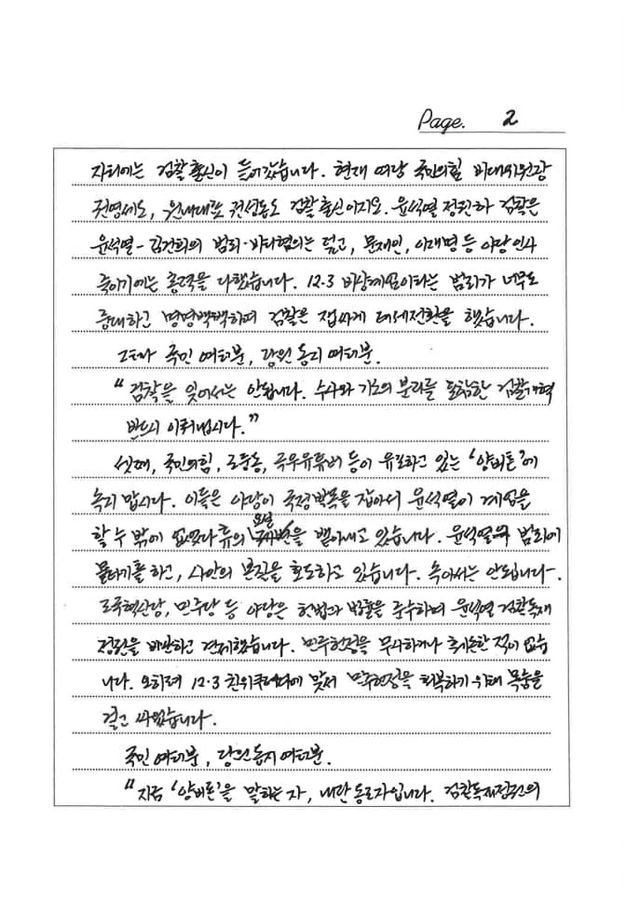 Page. 2
자리에는 검찰 출신이 들어갔습니다. 현재 여당 국민의힘 비대위원장
권영세도, 원내대표 권성동도 검찰 출신이지요. 윤석열 정권 하 검찰은
윤석열-김건희의 범죄·비리혐의는 덮고, 문재인, 이재명 등 야당인사
죽이기에는 총력을 다했습니다. 12.3 비상계엄이라는 범죄가 너무도
중대하고 명명백백하여 검찰은 잽싸게 태세전환을 했습니다.
그러나 국민 여러분, 당원 동지 여러분.
“검찰을 잊어서는 안됩니다. 수사와 기소의 분리를 포함한 검찰개혁
반드시 이뤄냅시다.”
셋째, 국민의힘, 조중동, 극우유튜버 등이 유포하고 있는 ‘양비론’에
속지 맙시다. 이들은 야당이 국정발목을 잡아서 윤석열이 계엄을
할 수 밖에 없었다 류의 요설을 뱉어내고 있습니다. 윤석열의 범죄에
물타기를 하고, 사안의 본질을 호도하고 있습니다. 속아서는 안됩니다.
조국혁신당, 민주당 등 야당은 헌법과 법률을 준수하며 윤석열 검찰독재
정권을 비판하고 견제했습니다. 민주헌정을 무시하거나 훼손한 적이 없습
니다. 오히려 12.3 친위쿠데타에 맞서 민주헌정을 회복하기 위해 목숨을
걸고 싸웠습니다.
국민 여러분, 당원동지 여러분.
“지금 ‘양비론’을 말하는 자, 내란 동조자입니다. 검찰독재정권의